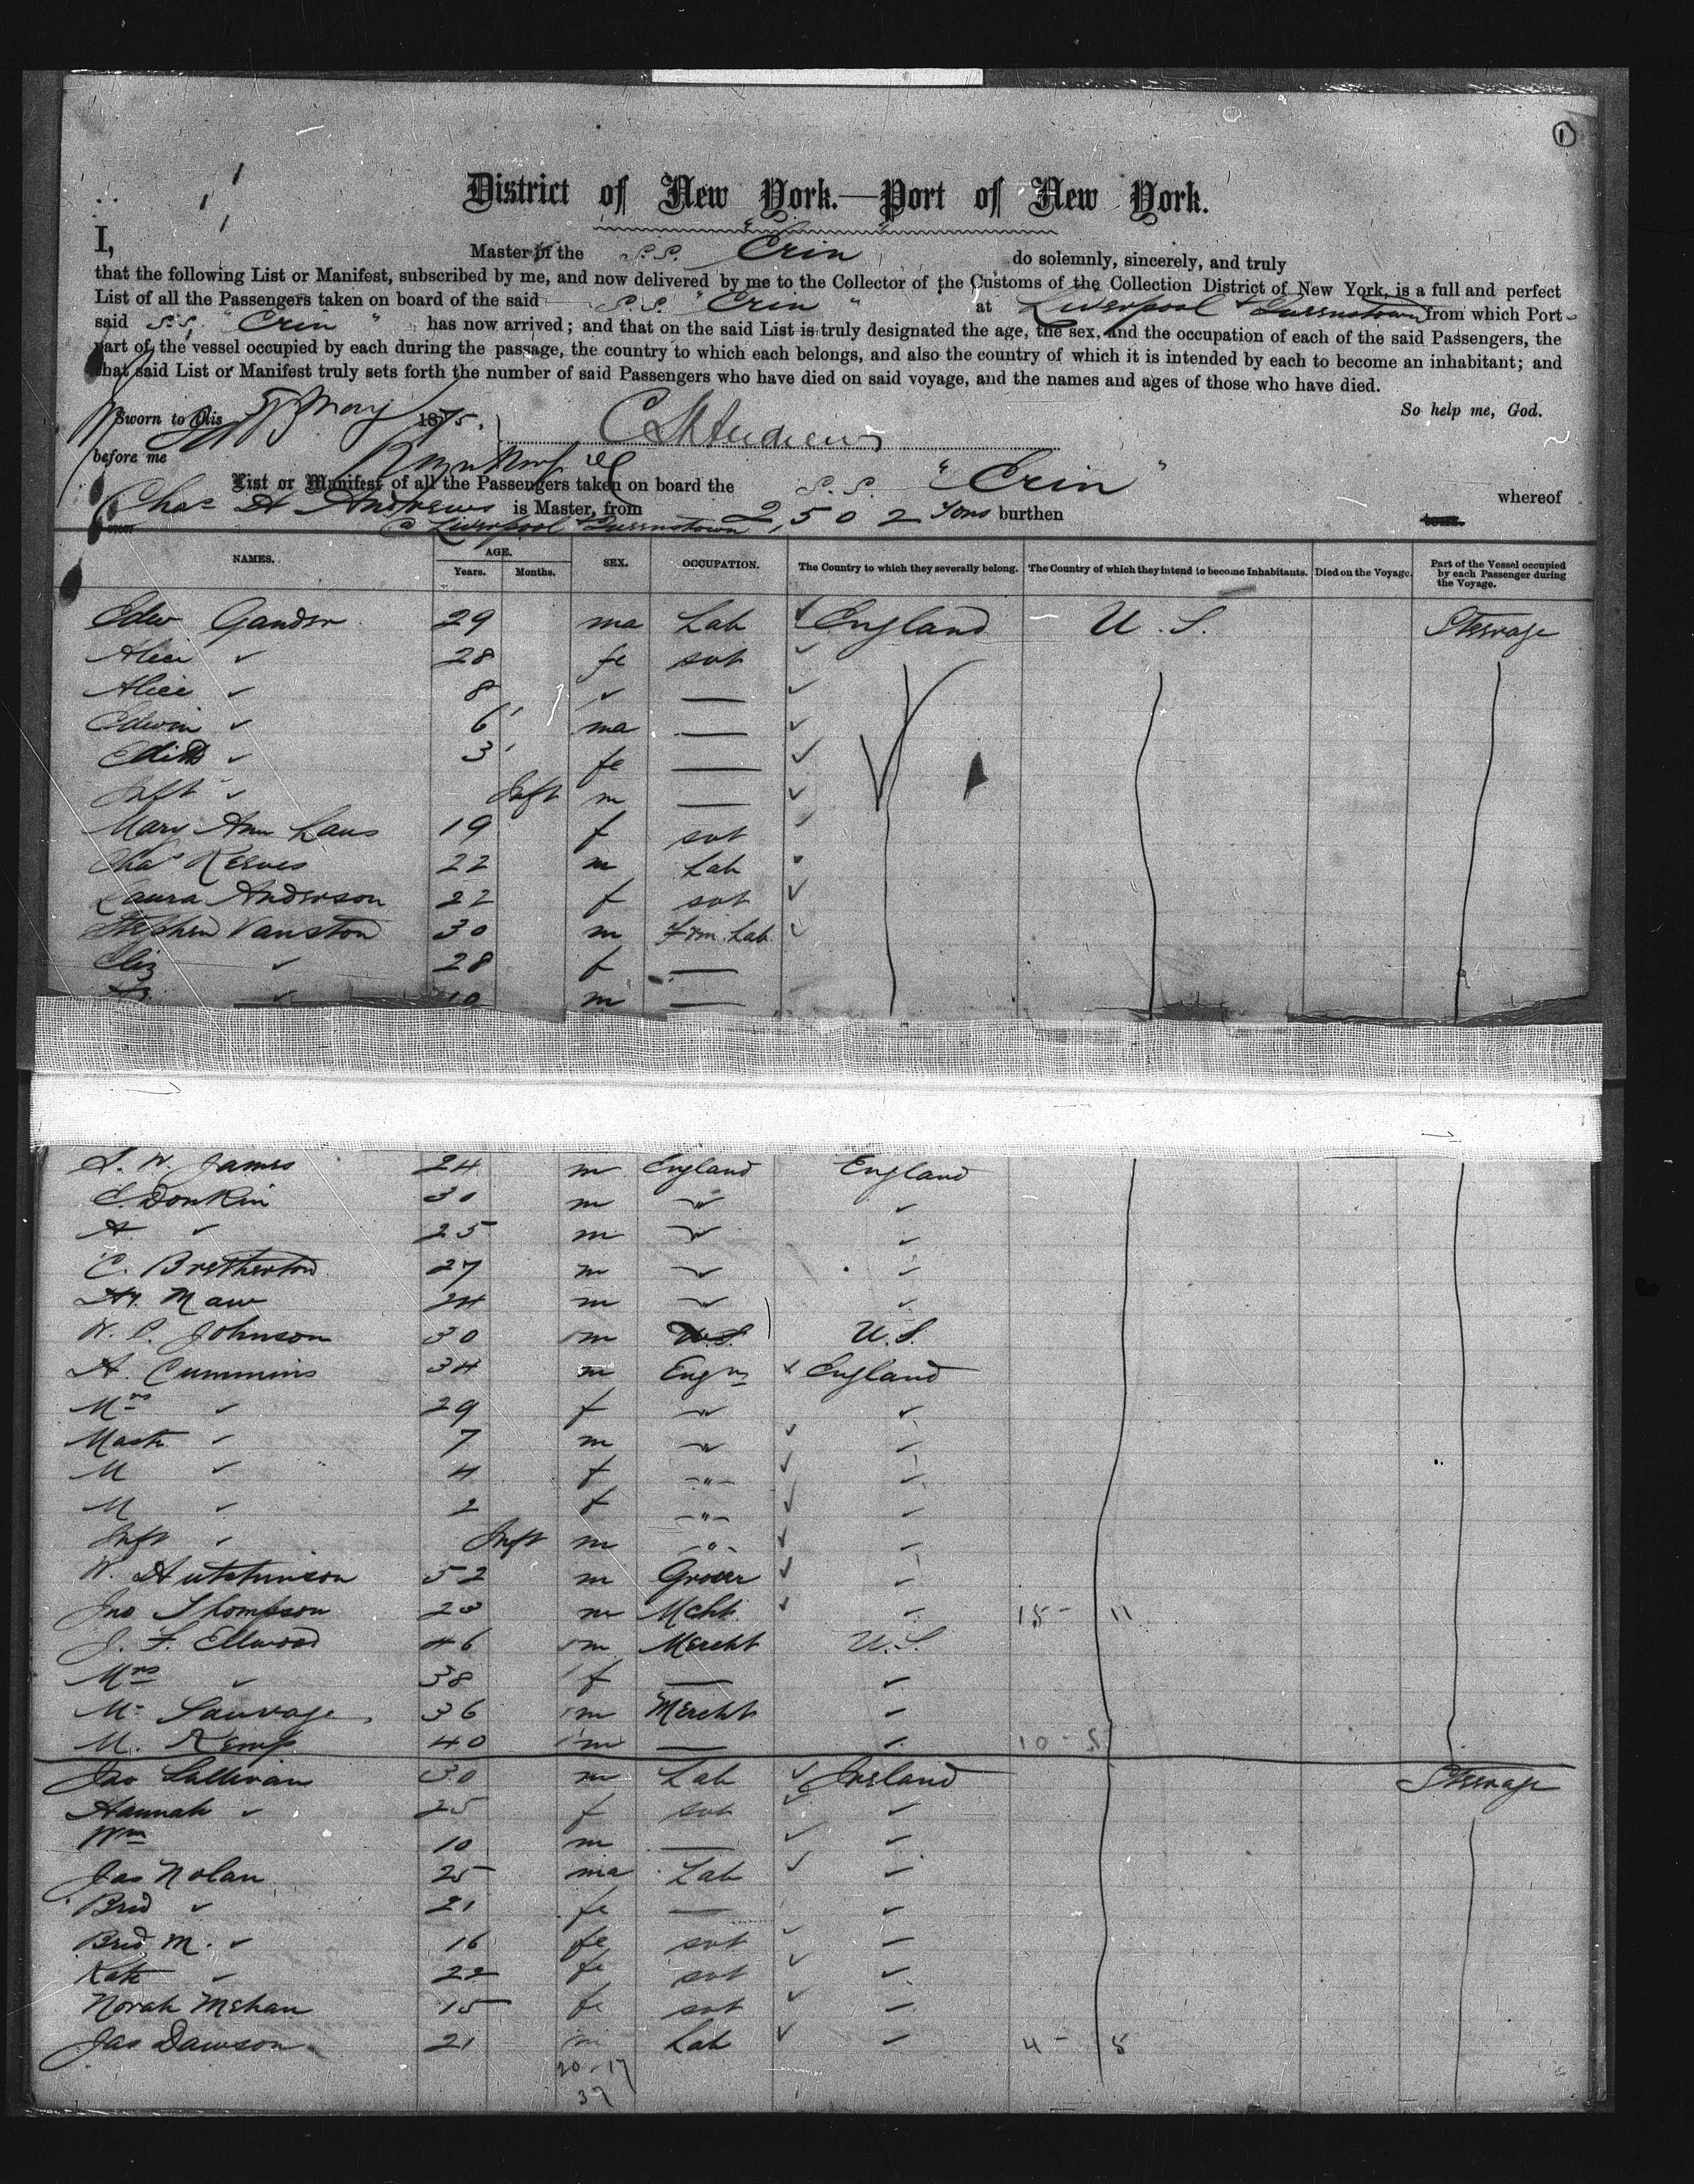 1
District of New York.—Port of New York.
I, Master of the S.S. "Erin" do solemnly, sincerely, and truly
that the following List or Manifest, subscribed by me, and now delivered by me to the Collector of the Customs of the Collection District of New York, is a full and perfect
List of all the Passengers taken on board of the said S.S. "Erin" at Liverpool & Queenstown from which Port
said S.S. "Erin" has now arrived; and that on the said List is truly designated the age, the sex, and the occupation of each of the said Passengers, the
part of the vessel occupied by each during the passage, the country to which each belongs, and also the country of which it is intended by each to become an inhabitant; and
that said List or Manifest truly sets forth the number of said Passengers who have died on said voyage, and the names and ages of those who have died.
So help me, God.
Sworn to this May 1875.
before me
List or Manifest of all the Passengers taken on board the S.S. "Erin" whereof
Chas H Andrews is Master, from Liverpool & Queenstown 2,502 Tons burthen
NAMES. AGE. Years. Months. SEX. OCCUPATION. The Country to which they severally belong. The Country of which they intend to become Inhabitants. Died on the Voyage. Part of the Vessel occupied by each Passenger during the Voyage.
Edw Gander 29 ma Lab England U.S. Steerage
Alice 28 fe svt
Alice 8 —
Edwin 6 ma —
Edith 3 fe —
Inft Inft m —
Mary Ann 19 f svt
Chas Reeves 22 m Lab
Laura Anderson 22 f svt
Stephen Vanston 30 m Frm. Lab.
Eliz 28 f —
10 m —
S. W. James 24 m England England
C. Donkin 30 m
A 25 m
C. Bretherton 27 m
Hy. Maw 24 m
W. P. Johnson 30 m U.S. U.S.
A. Cummins 34 m Engr England
Mrs 29 f
Mastr 7 m
M 4 f "
M 2 f "
Inft Inft m "
W. Hutchinson 52 m Grocer
Jno Thompson 23 m Mcht. 15 - 11
J. F. Ellwood 46 m Mercht U.S.
Mrs 38 f —
Mr Sauvage 36 m Mercht
M. Kemp 40 m — 10 - 5
Jas Sullivan 30 m Lab Ireland Steerage
Hannah 25 f svt
Wm 10 m —
Jas Nolan 25 ma Lab
Brid 21 fe —
Brid M. 16 fe svt
Kate 22 fe svt
Norah Mehan 15 fe svt
Jas Dawson 21 m Lab 4 - 5
20 - 17
37